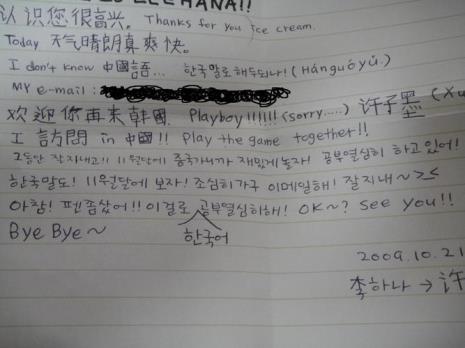 LEE HANA!!
认识您很高兴. Thanks for you Ice cream.
Today 天气晴朗真爽快.
I don't know 中國語... 한국말로 해두되나! (Hánguóyǔ.)
MY e-mail :
欢迎你再来韓國. Playboy!!!!!! (sorry.....) 许子墨 (Xu
I 訪問 in 中國!! Play the game together!!
그동안 잘지내고!! 11월달에 중국가니까 재밌게놀자! 공부열심히 하고있어!
한국말도! 11월달에 보자! 조심히가구 이메일해! 잘지내~>≤
아참! 펜좀샀어!! 이걸로 공부열심히해! OK~? See you!!
Bye Bye~ 한국어
2009.10.21
李하나 → 许